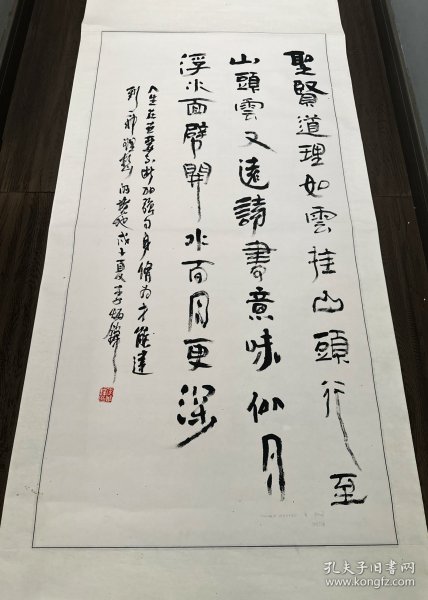 聖賢道理如雲挂山頭行至
山頭雲又遠讀書意味似月
浮水面劈開水面月更深
人生在世要不斷加強自身修為才能達
到一
戊子夏李炳
孔夫子旧书网
www.kongfz.com